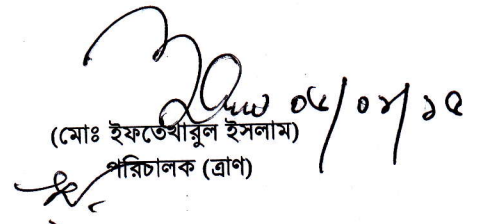 ০৫/০৮/১৫
(মোঃ ইফতেখারুল ইসলাম)
পরিচালক (ত্রাণ)